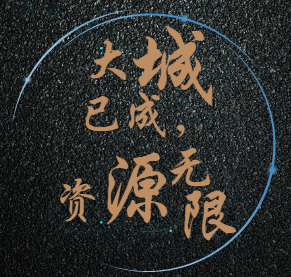 大城
已成，
资源无限